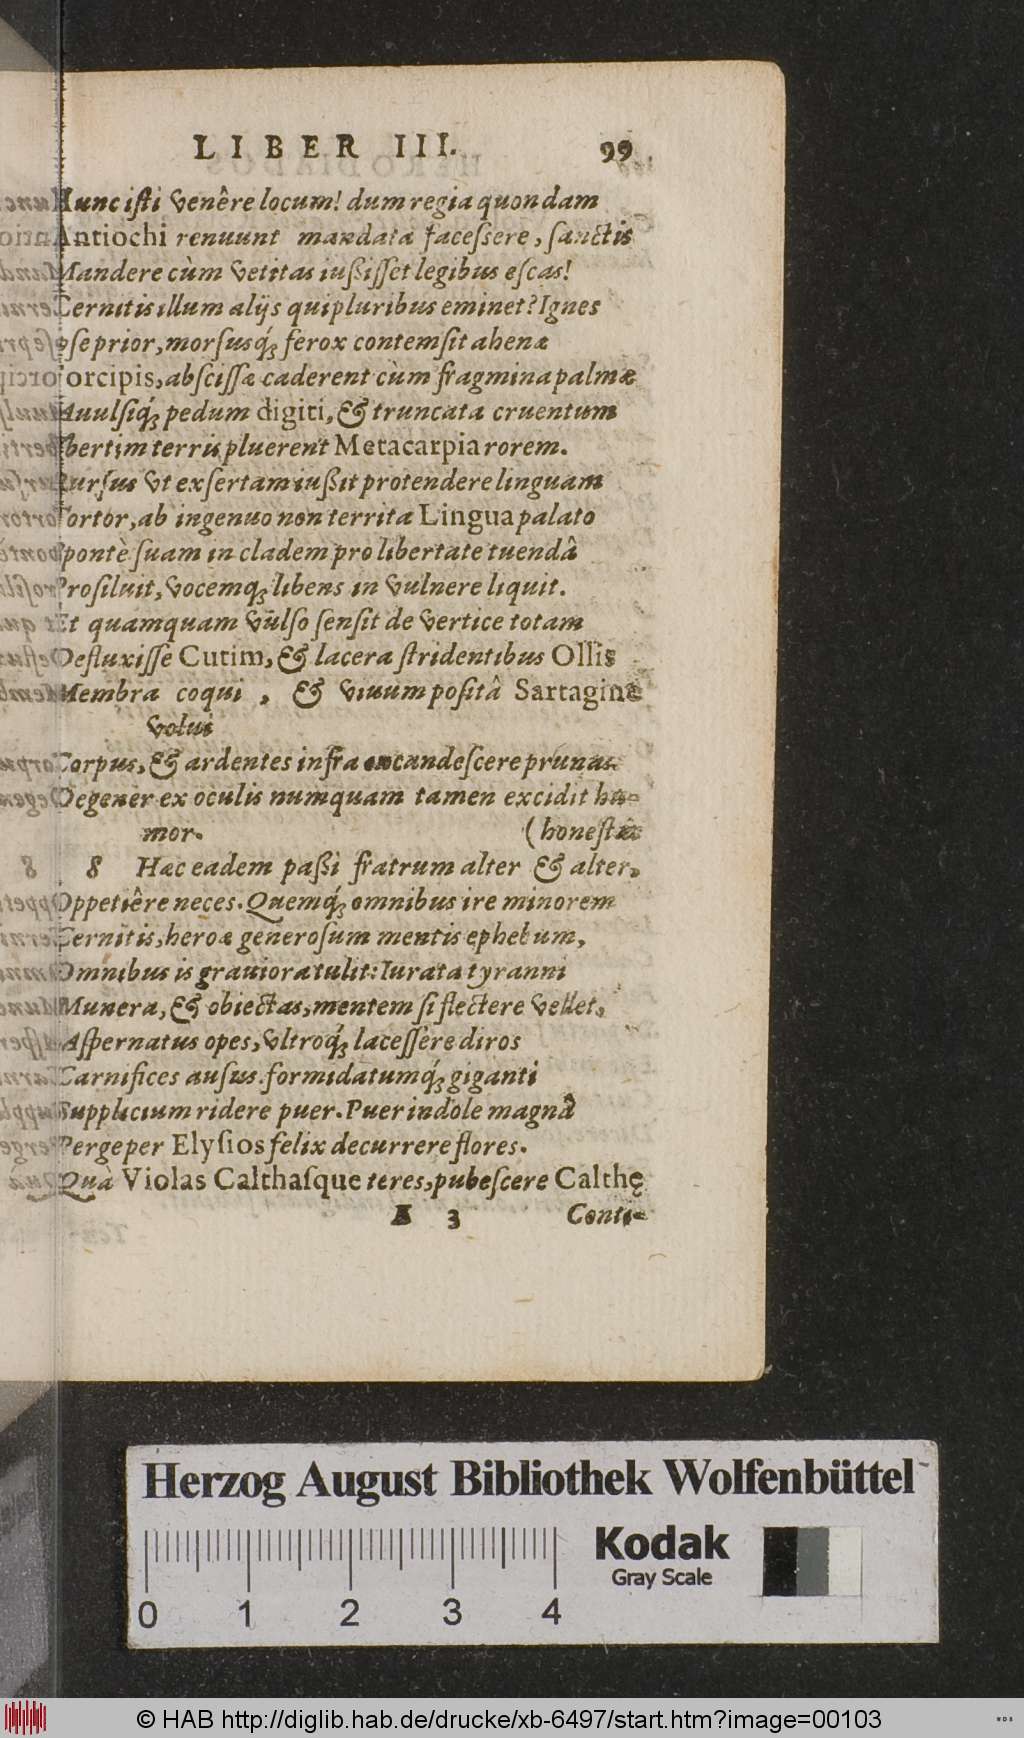 LIBER III. 99
Hunc isti venêre locum! dum regia quondam
Antiochi renuunt mandata facessere, sanctis
Mandere cùm vetitas iußisset legibus escas!
Cernitis illum alijs qui pluribus eminet? Ignes
Ipse prior, morsusq́; ferox contemsit ahenæ
Forcipis, abscissæ caderent cùm fragmina palmæ
Auulsiq́; pedum digiti, & truncata cruentum
Vbertim terris pluerent Metacarpia rorem.
Rursus vt exsertam iußit protendere linguam
Tortor, ab ingenuo non territa Lingua palato
Spontè suam in cladem pro libertate tuendâ
Prosiluit, vocemq; libens in vulnere liquit.
Et quamquam vulso sensit de vertice totam
Defluxisse Cutim, & lacera stridentibus Ollis
Membra coqui, & viuum positâ Sartagine
volui
Corpus, & ardentes infra excandescere prunas
Degener ex oculis numquam tamen excidit hu-
mor. (honestas
8 Hæc eadem paßi fratrum alter & alter,
Oppetiêre neces. Quemq́; omnibus ire minorem
Cernitis, heroæ generosum mentis ephebum,
Omnibus is grauiora tulit: Iurata tyranni
Munera, & obiectas, mentem si flectere vellet,
Aspernatus opes, vltroq́; lacessere diros
Carnifices ausus. formidatumq́; giganti
Supplicium ridere puer. Puer indole magnâ
Perge per Elysios felix decurrere flores.
Quà Violas Calthasque teres, pubescere Calthę
3 Conti-
Herzog August Bibliothek Wolfenbüttel
Kodak
Gray Scale
0 1 2 3 4
© HAB http://diglib.hab.de/drucke/xb-6497/start.htm?image=00103